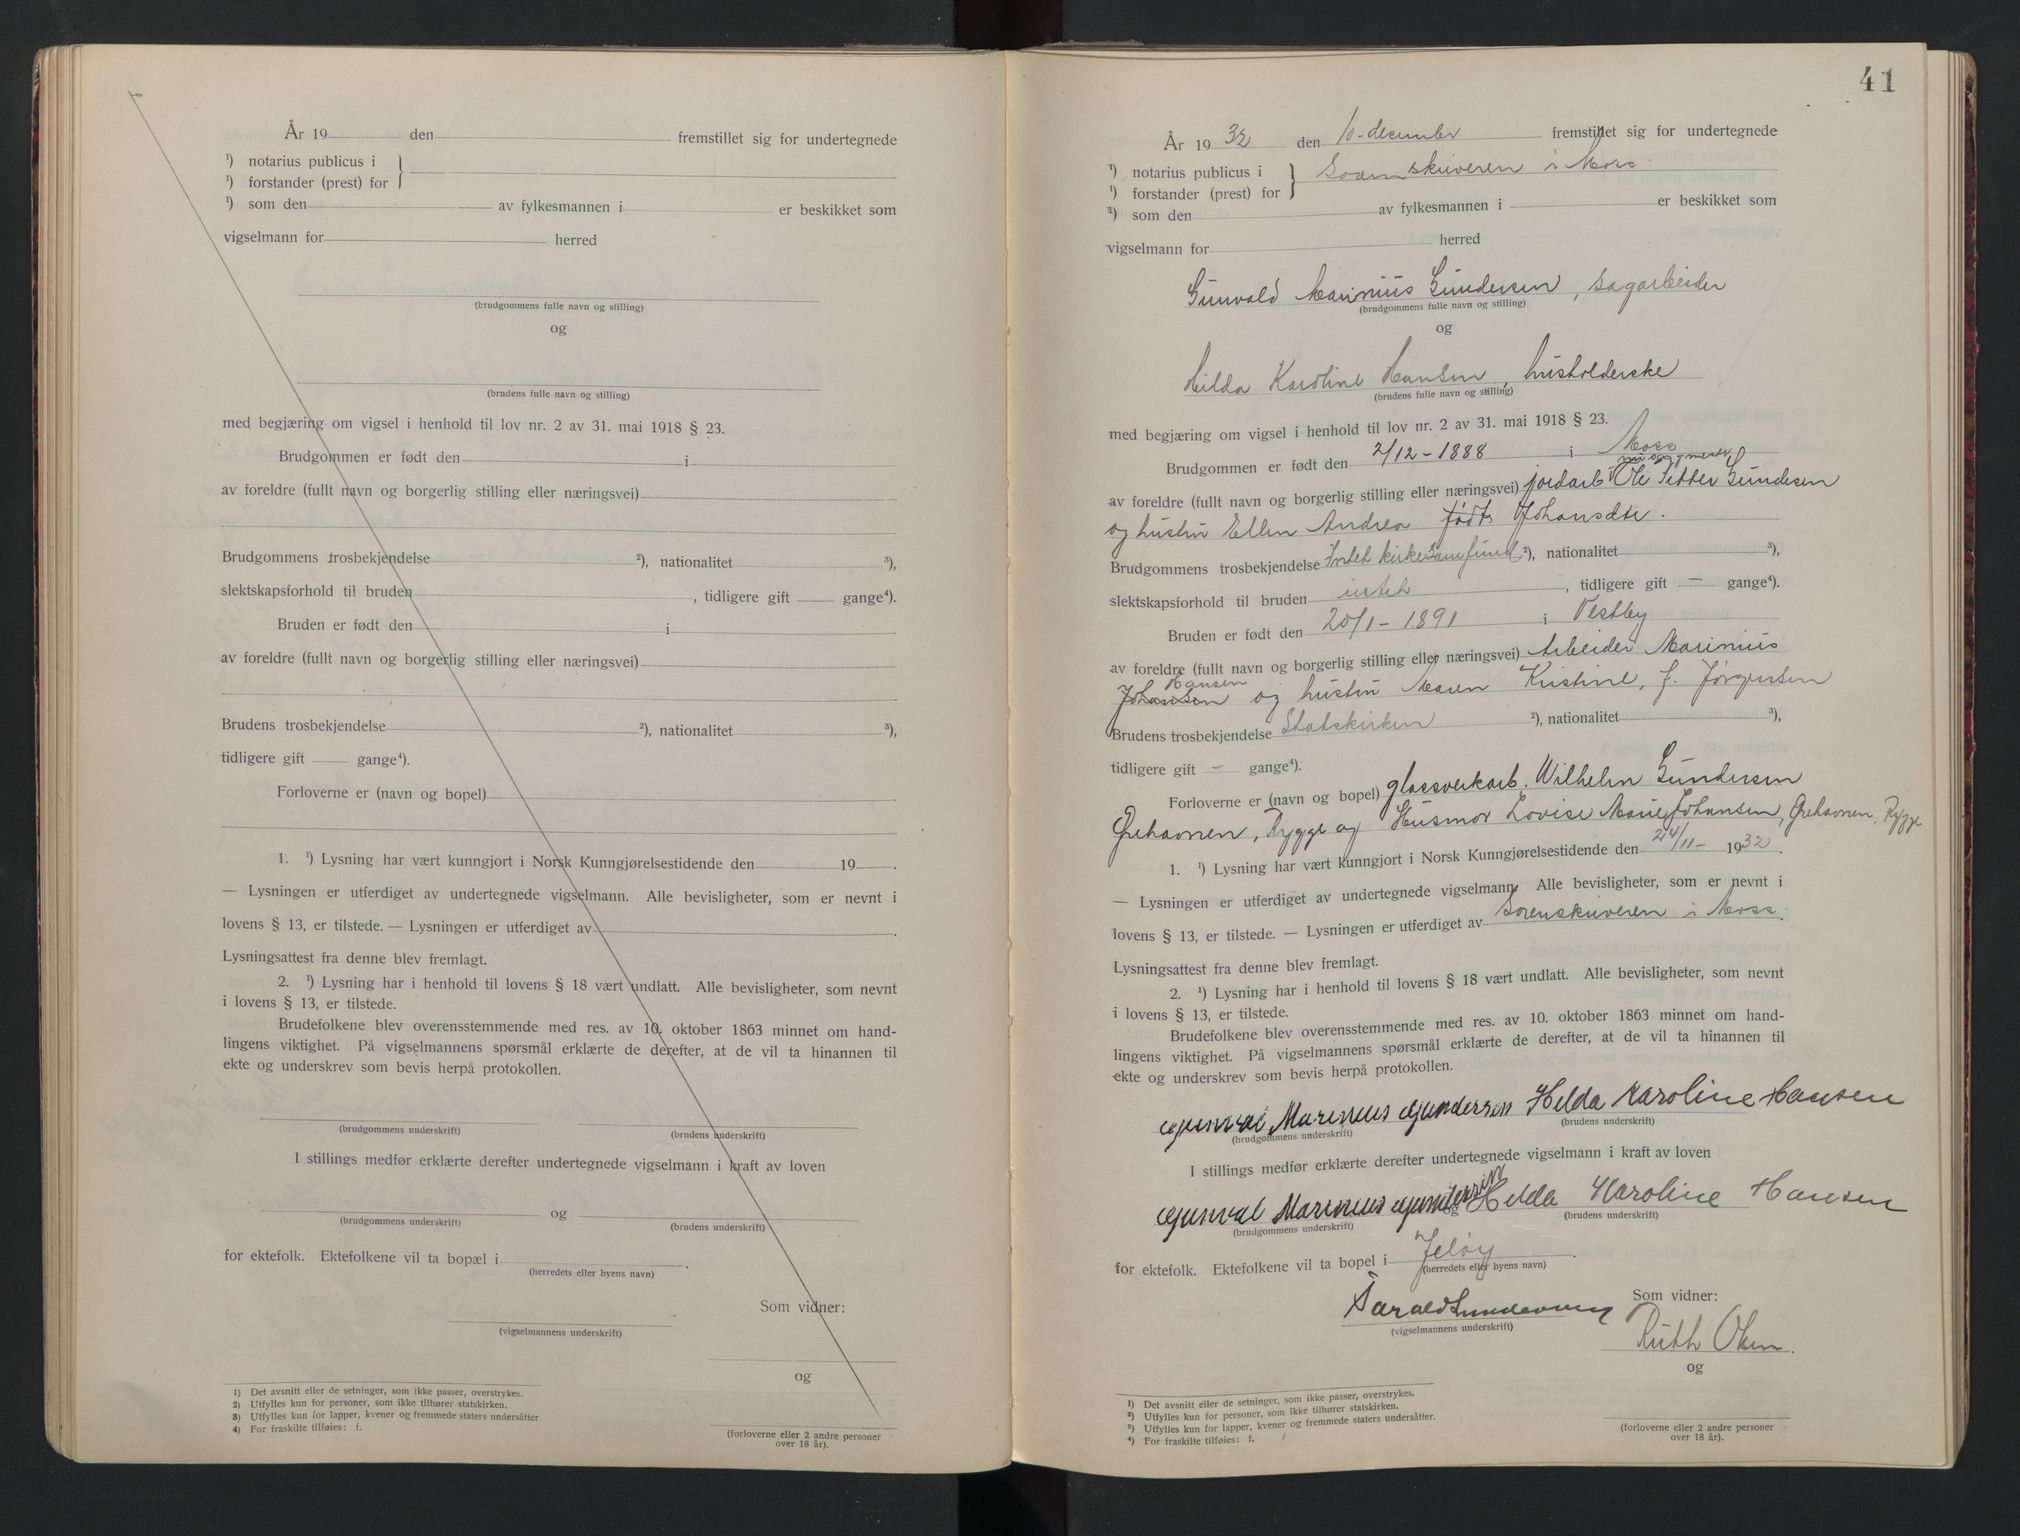 År 19 den fremstillet sig for undertegnede
¹) notarius publicus i
¹) forstander (prest) for
¹) som den av fylkesmannen i er beskikket som
vigselmann for herred
(brudgommens fulle navn og stilling)
og
(brudens fulle navn og stilling)
med begjæring om vigsel i henhold til lov nr. 2 av 31. mai 1918 § 23.
Brudgommen er født den i
av foreldre (fullt navn og borgerlig stilling eller næringsvei)
Brudgommens trosbekjendelse ²), nationalitet ³),
slektskapsforhold til bruden , tidligere gift gange⁴).
Bruden er født den i
av foreldre (fullt navn og borgerlig stilling eller næringsvei)
Brudens trosbekjendelse ²), nationalitet ³),
tidligere gift gange⁴).
Forloverne er (navn og bopel)
1. ¹) Lysning har vært kunngjort i Norsk Kunngjørelsestidende den 19 .
— Lysningen er utferdiget av undertegnede vigselmann. Alle bevisligheter, som er nevnt i
lovens § 13, er tilstede. — Lysningen er utferdiget av .
Lysningsattest fra denne blev fremlagt.
2. ¹) Lysning har i henhold til lovens § 18 vært undlatt. Alle bevisligheter, som nevnt
i lovens § 13, er tilstede.
Brudefolkene blev overensstemmende med res. av 10. oktober 1863 minnet om hand-
lingens viktighet. På vigselmannens spørsmål erklærte de derefter, at de vil ta hinannen til
ekte og underskrev som bevis herpå protokollen.
(brudgommens underskrift) (brudens underskrift)
I stillings medfør erklærte derefter undertegnede vigselmann i kraft av loven
og
(brudgommens underskrift) (brudens underskrift)
for ektefolk. Ektefolkene vil ta bopæl i .
(herredets eller byens navn)
Som vidner:
(vigselmannens underskrift)
og
1) Det avsnitt eller de setninger, som ikke passer, overstrykes.
2) Utfylles kun for personer, som ikke tilhører statskirken.
3) Utfylles kun for lapper, kvener og fremmede staters undersåtter
4) For fraskilte tilføies: f.
(forloverne eller 2 andre personer
over 18 år).
41
År 19 32 den 10-desember fremstillet sig for undertegnede
¹) notarius publicus i
¹) forstander (prest) for
Sorenskriveren i Moss
¹) som den av fylkesmannen i er beskikket som
vigselmann for herred
Gunvald Marinius Gundersen, sagarbeider
(brudgommens fulle navn og stilling)
og
Hilda Karoline Hansen, husholderske
(brudens fulle navn og stilling)
med begjæring om vigsel i henhold til lov nr. 2 av 31. mai 1918 § 23.
Brudgommen er født den 2/12-1888 i Moss
av foreldre (fullt navn og borgerlig stilling eller næringsvei) jordarb Ole Petter Gundesen
og hustru Ellen Andrea født Johansdtr.
Brudgommens trosbekjendelse Intet kirkesamfund ²), nationalitet ³),
slektskapsforhold til bruden intet , tidligere gift — gange⁴).
Bruden er født den 20/1-1891 i Vestby
av foreldre (fullt navn og borgerlig stilling eller næringsvei) Arbeider Marinius
Hansen
Johansen og hustru Maren Kristine, f. Jørgensen
Brudens trosbekjendelse Statskirken ²), nationalitet ³),
tidligere gift — gange⁴).
Forloverne er (navn og bopel) glassverkarb. Wilhelm Gundersen
Ørehavnen, Rygge og Husmor Lovise Marie Johansen, Ørehavnen, Rygge
1. ¹) Lysning har vært kunngjort i Norsk Kunngjørelsestidende den 24/11- 1932.
— Lysningen er utferdiget av undertegnede vigselmann. Alle bevisligheter, som er nevnt i
lovens § 13, er tilstede. — Lysningen er utferdiget av Sorenskriveren i Moss.
Lysningsattest fra denne blev fremlagt.
2. ¹) Lysning har i henhold til lovens § 18 vært undlatt. Alle bevisligheter, som nevnt
i lovens § 13, er tilstede.
Brudefolkene blev overensstemmende med res. av 10. oktober 1863 minnet om hand-
lingens viktighet. På vigselmannens spørsmål erklærte de derefter, at de vil ta hinannen til
ekte og underskrev som bevis herpå protokollen.
Gunval Marineus Gundersin Helda Karoline Hansen
(brudgommens underskrift) (brudens underskrift)
I stillings medfør erklærte derefter undertegnede vigselmann i kraft av loven
Gunval Marineus Gundersin og Helda Karoline Hansen
(brudgommens underskrift) (brudens underskrift)
for ektefolk. Ektefolkene vil ta bopel i Jeløy .
(herredets eller byens navn)
Som vidner:
(vigselmannens underskrift)
Ruth Olsen.
og
1) Det avsnitt eller de setninger, som ikke passer, overstrykes.
2) Utfylles kun for personer, som ikke tilhører statskirken.
3) Utfylles kun for lapper, kvener og fremmede staters undersåtter.
4) For fraskilte tilføies: f.
(forloverne eller 2 andre personer
over 18 år).